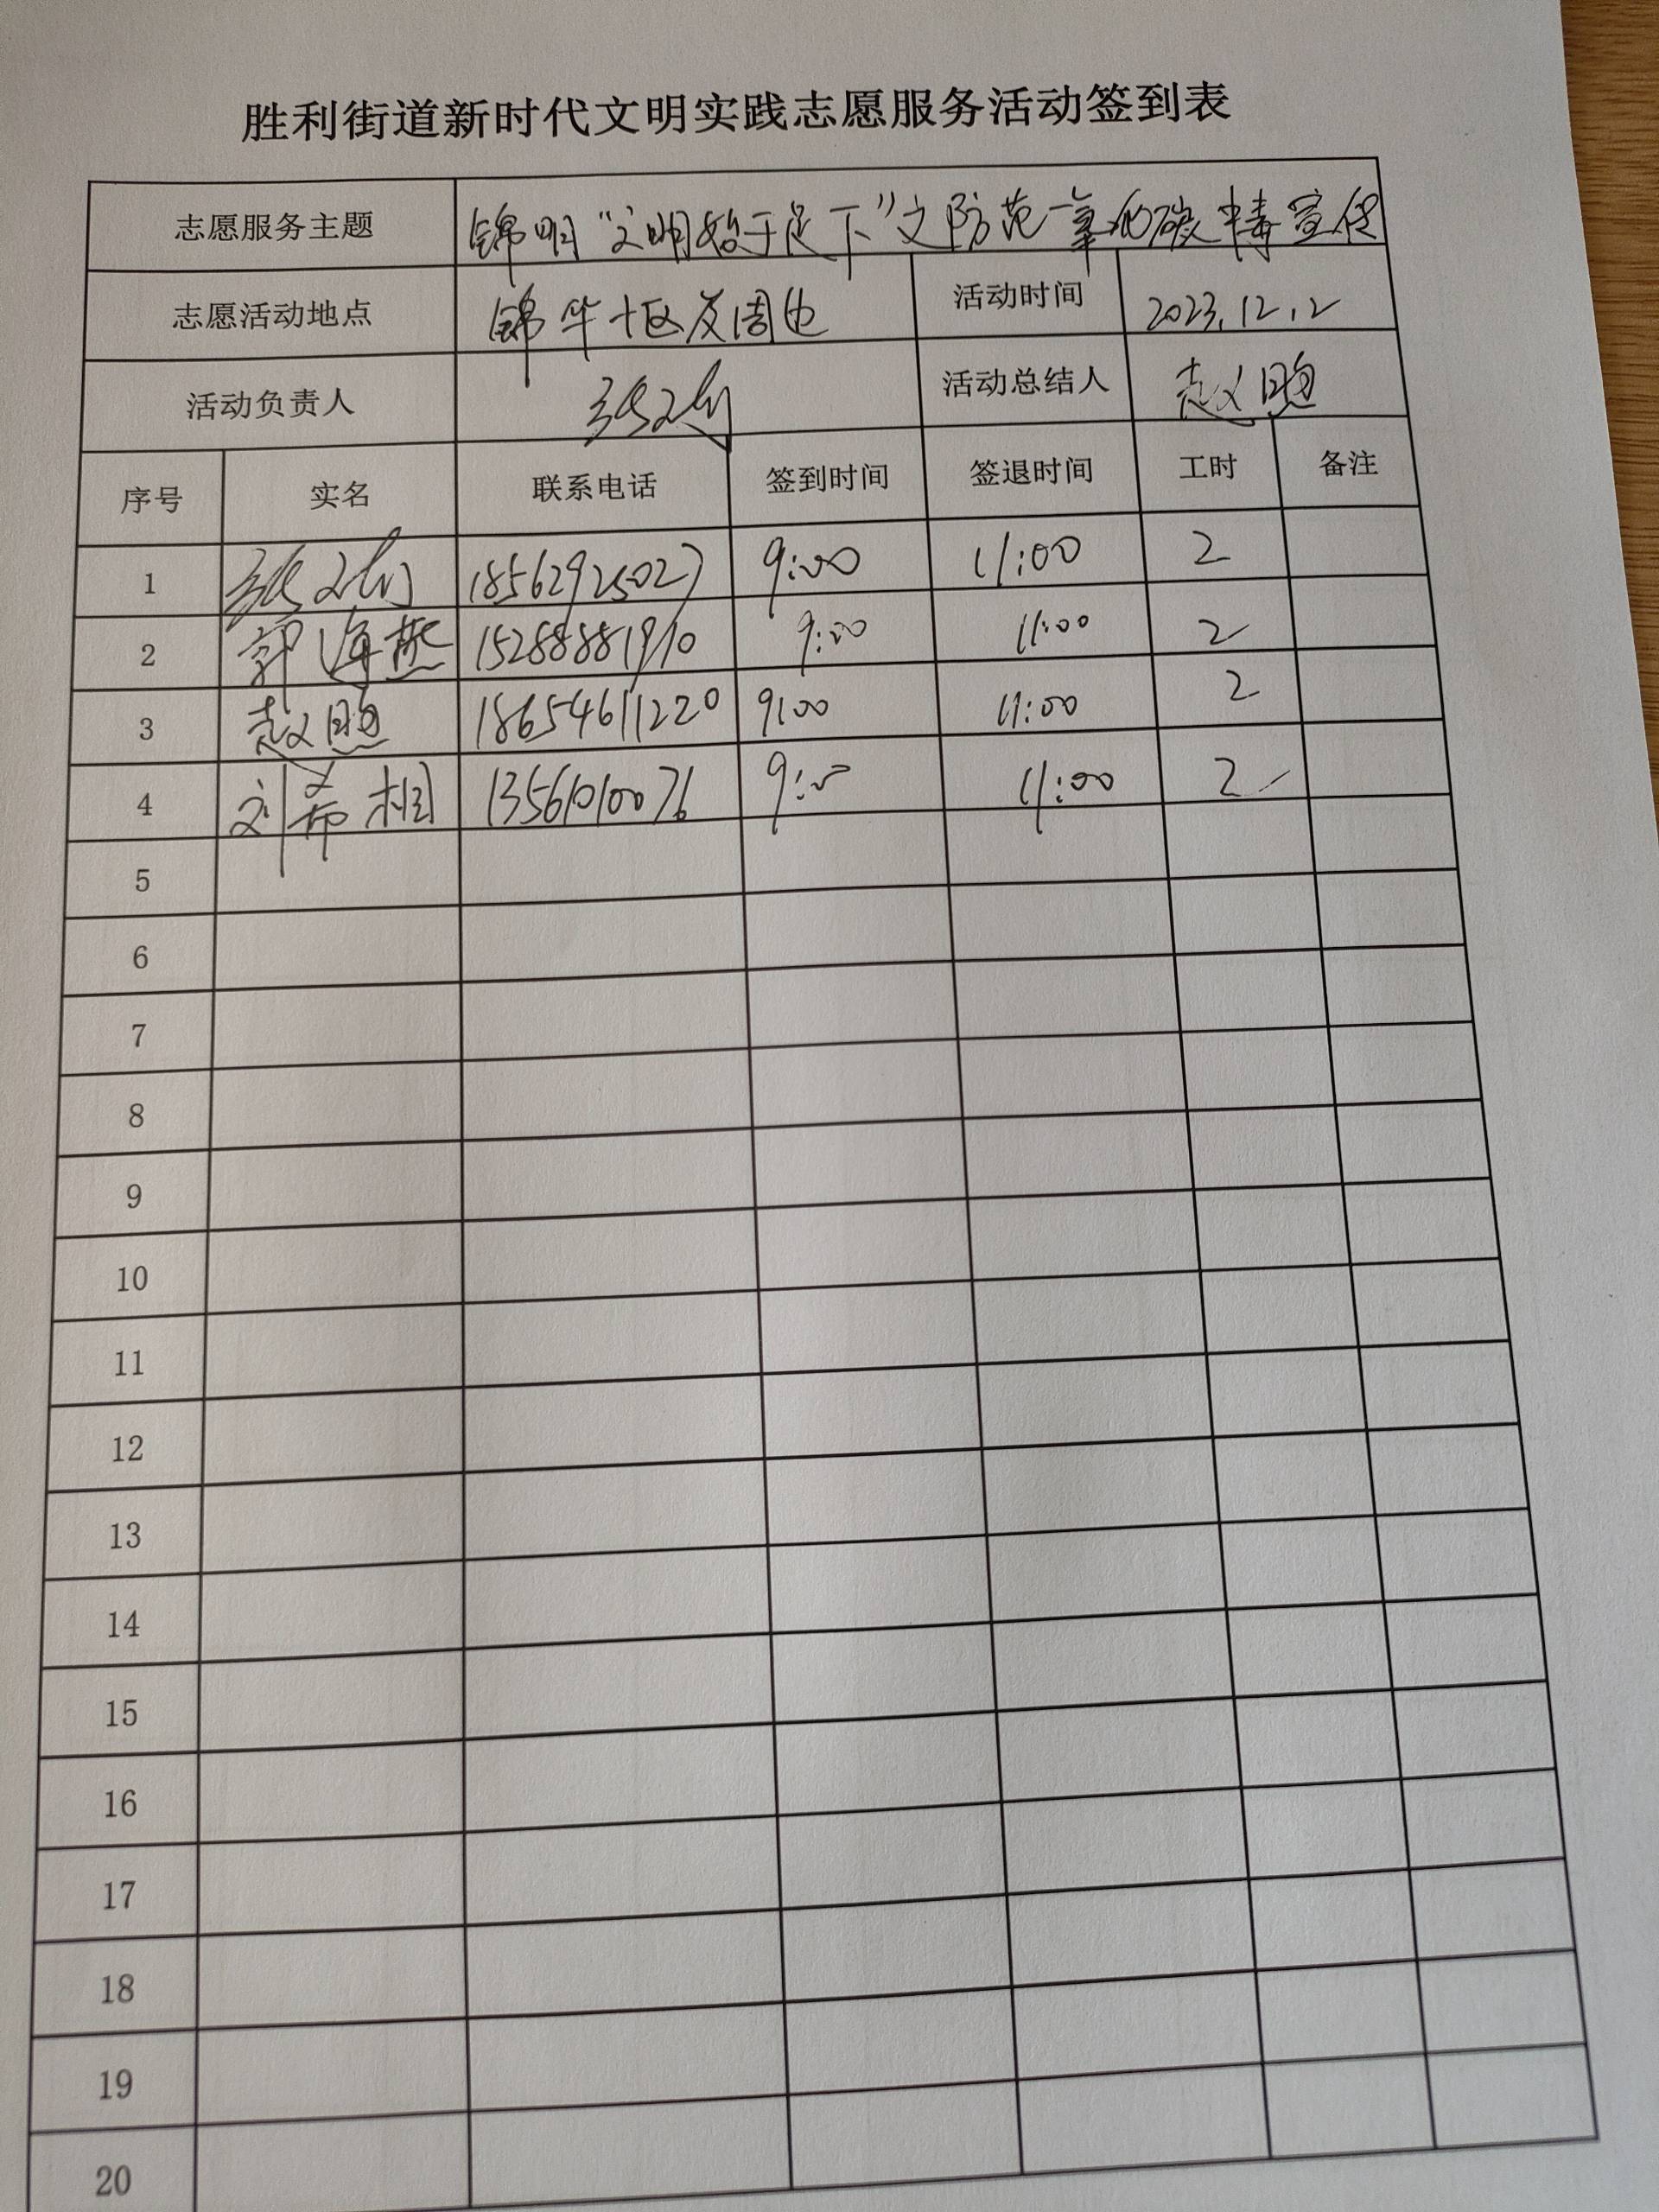 胜利街道新时代文明实践志愿服务活动签到表
志愿服务主题 锦明“文明始于足下”文防范一氧化碳中毒宣传
志愿活动地点 锦华十区及周边 活动时间 2023.12.2
活动负责人 活动总结人 赵
序号 实名 联系电话 签到时间 签退时间 工时 备注
1 18562925027 9:00 11:00 2
2 郭海燕 15288881910 9:00 11:00 2
3 赵 18654611220 9:00 11:00 2
4 刘希 13561010076 9:00 11:00 2
5
6
7
8
9
10
11
12
13
14
15
16
17
18
19
20